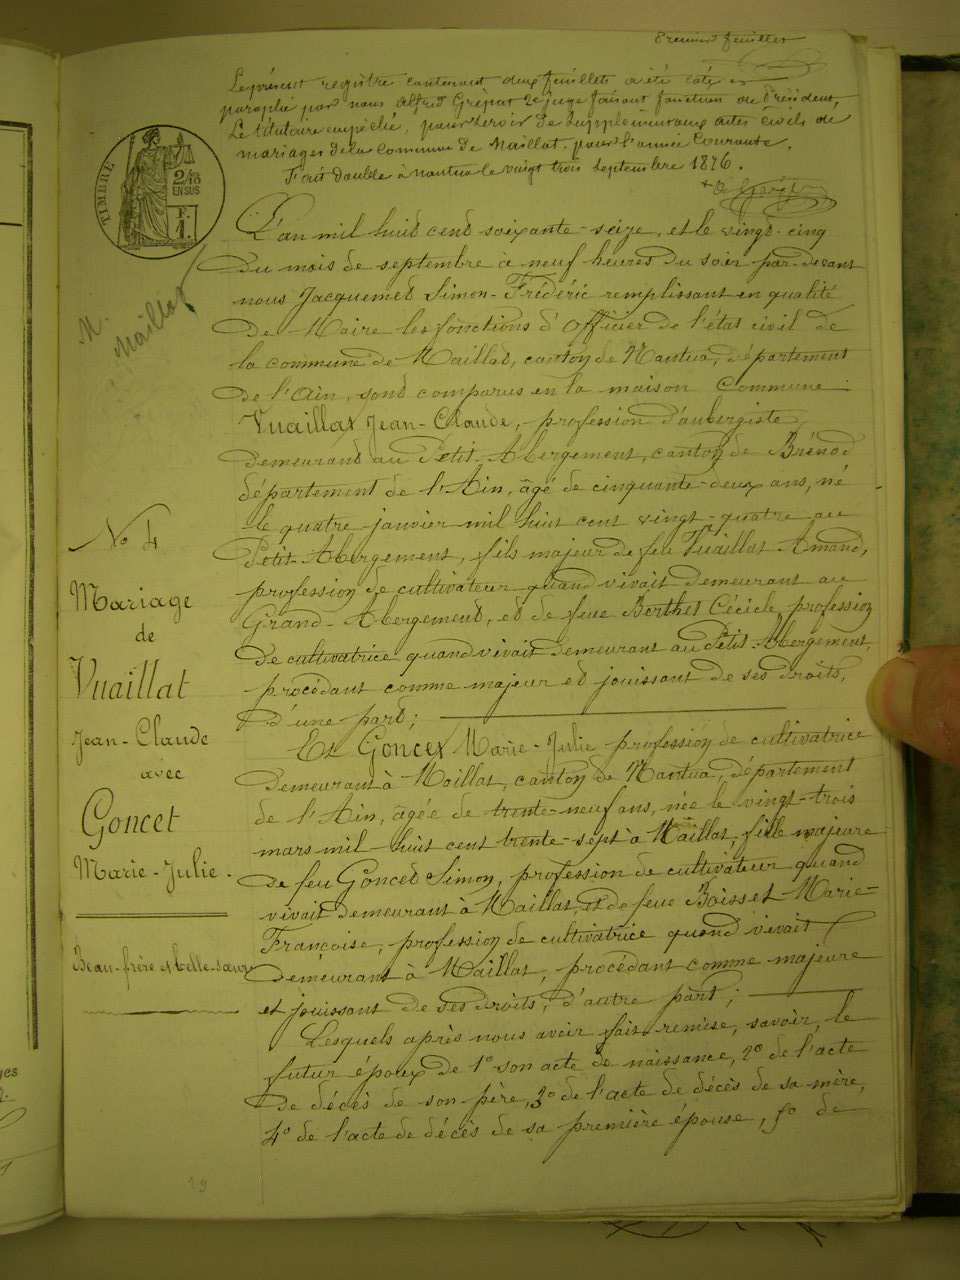 Premier feuillet
Le présent registre contenant deux feuillets a été coté et
paraphé par nous Alfred Grépat 2e juge faisant fonction de Président,
Le titulaire empêché, pour servir de supplément aux actes civils de
mariages de la Commune de Maillat, pour l'année courante.
Fait double à Nantua le vingt trois septembre 1876.
TIMBRE
2/10
EN SUS
F.
1.
L'an mil huit cent soixante-seize, et le vingt-cinq
du mois de septembre à neuf heures du soir par-devant
nous Jacquemet Simon-Frédéric remplissant en qualité
de Maire les fonctions d'Officier de l'état civil de
la commune de Maillat, canton de Nantua, département
de l'Ain, sont comparus en la maison Commune :
Vuaillat Jean-Claude, profession d'aubergiste,
demeurant au Petit-Abergement, canton de Brénod
département de l'Ain, âgé de cinquante-deux ans, né
le quatre janvier mil huit cent vingt-quatre au
Petit-Abergement, fils majeur de feu Vuaillat Amand,
profession de cultivateur quand vivait demeurant au
Grand-Abergement, et de feue Berthet Cécile, profession
de cultivatrice quand vivait demeurant au Petit-Abergement,
procédant comme majeur et jouissant de ses droits,
d'une part;
Et Goncet Marie-Julie profession de cultivatrice
demeurant à Maillat, canton de Nantua, département
de l'Ain, âgée de trente-neuf ans, née le vingt-trois
mars mil-huit cent trente-sept à Maillat, fille majeure
de feu Goncet Simon, profession de cultivateur quand
vivait demeurant à Maillat, et de feue Boisset Marie-
Françoise, profession de cultivatrice quand vivait
demeurant à Maillat, procédant comme majeure
et jouissant de ses droits, d'autre part;
Lesquels après nous avoir fait remise, savoir, le
futur époux de 1º son acte de naissance, 2º de l'acte
de décès de son père, 3º de l'acte de décès de sa mère,
4º de l'acte de décès de sa première épouse, 5º de
M.
Maillat
No 4
Mariage
de
Vuaillat
Jean-Claude
avec
Goncet
Marie-Julie.
Beau-frère et belle-sœur
29